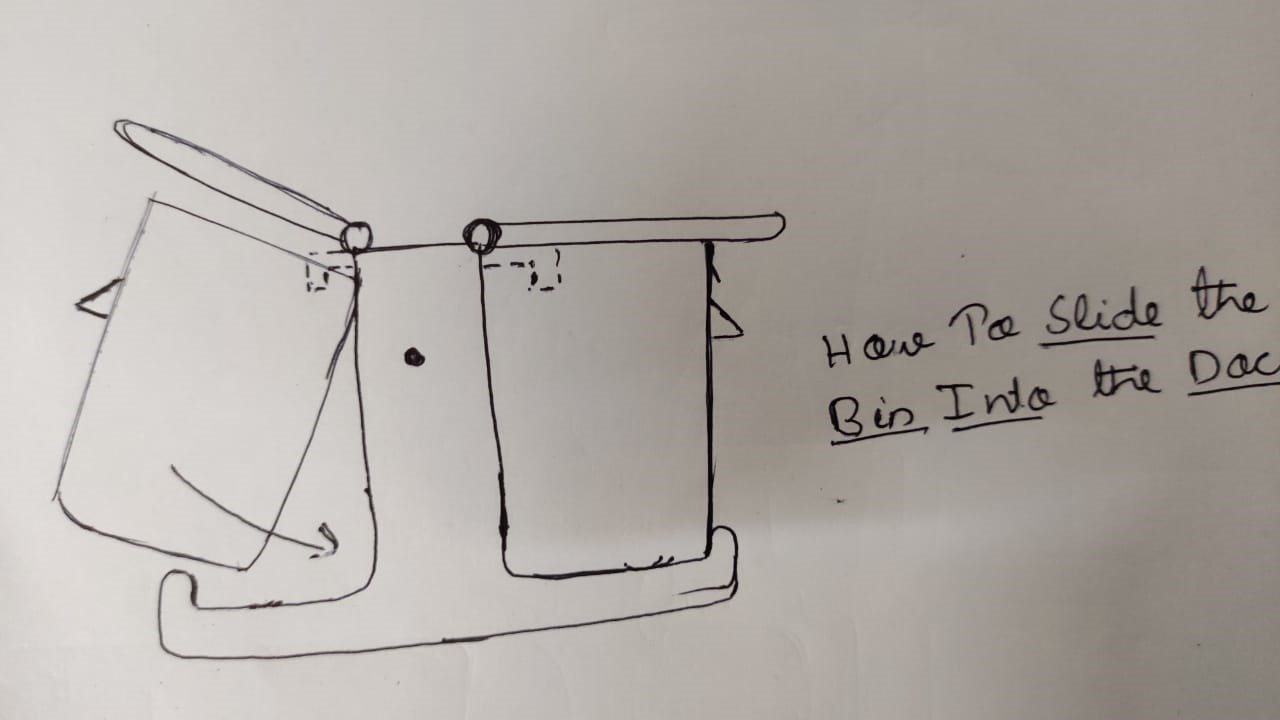 How To Slide the
Bin Into the Doc